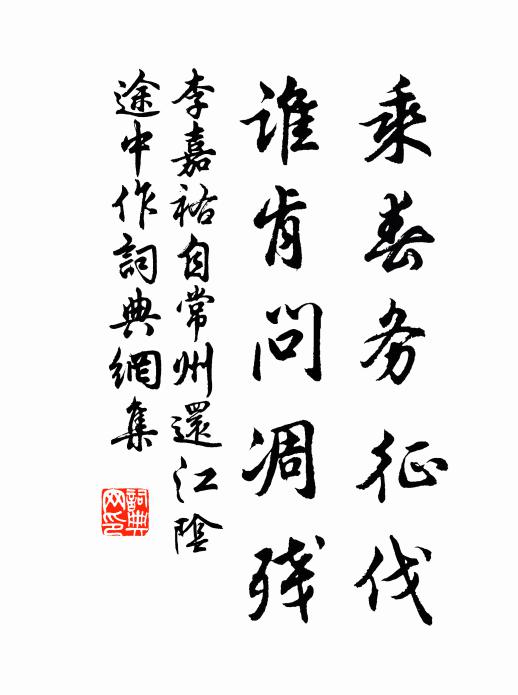 乘春务征伐
谁肯问凋残
李嘉祐自常州還江陰
途中作詞典網集
詞典
网印